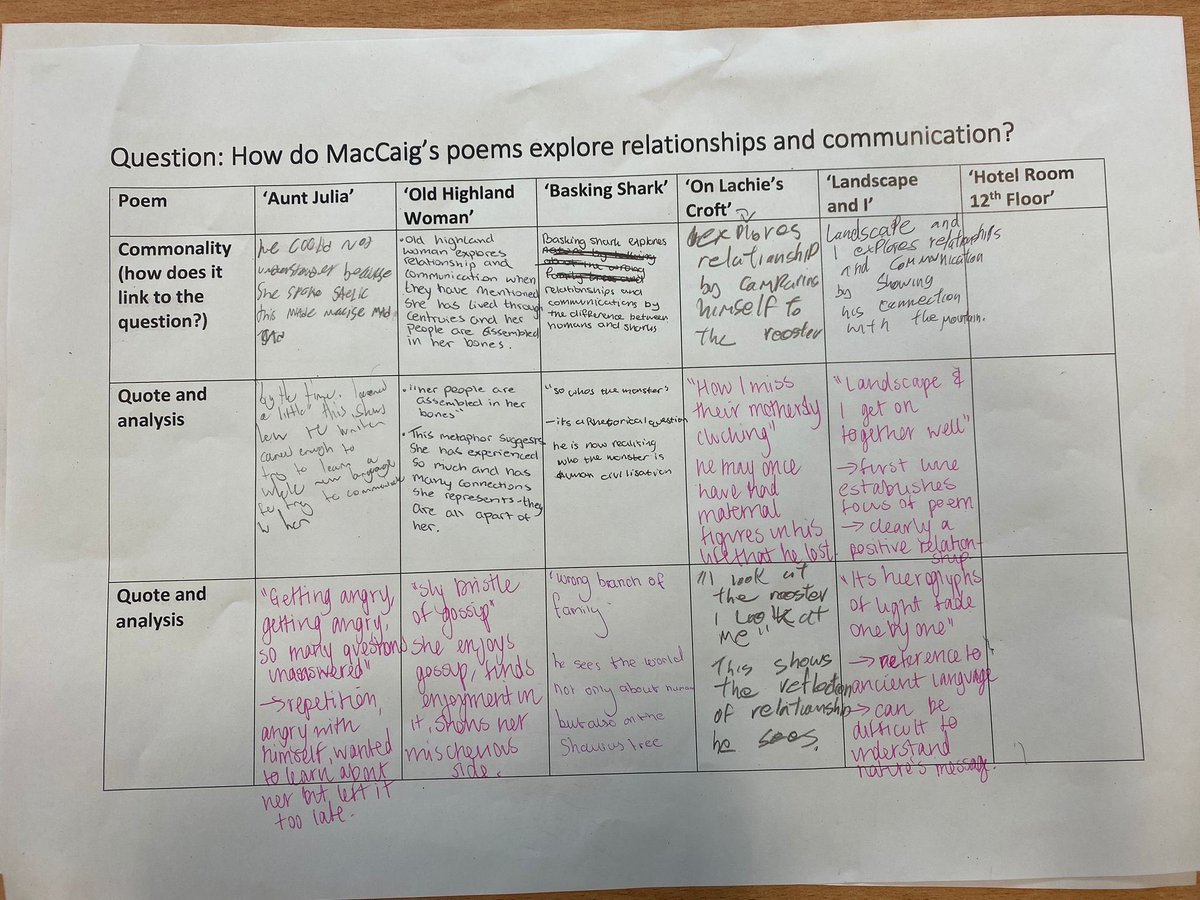 Question: How do MacCaig's poems explore relationships and communication?
Poem
'Aunt Julia'
'Old Highland
Woman'
'Basking Shark'
'On Lachie's
Croft'
'Landscape
and I'
'Hotel Room
12th Floor'
Commonality
(how does it
link to the
question?)
he could not
because
she spoke
this made mad
• Old highland
woman explores
relationship and
communication when
they have mentioned
she has lived through
centruies and her
people are assembled
in her bones.
Basking shark explores
relationships and
communications by
the difference between
humans and sharks
explores
relationship
by comparing
himself to
the rooster
Landscape and
I explores relationships
and communication
by showing
his connection
with the mountain.
Quote and
analysis
by the time I learned
a little" this shows
how
cared enough to
try to learn a
whole new language
to try to communicate
to her
• "her people are
assembled in her
bones"
• This metaphor suggests
she has experienced
so much and has
many connections
she represents - they
are all apart of
her.
"so whos the monster"
- its a Rhetorical question
he is now realising
who the monster is
human civilisation
"How I miss
their motherly
clucking"
he may once
have had
maternal
figures in his
life that he lost
"Landscape &
I get on
together well"
→ first line
establishes
focus of poem
→ clearly a
positive relation-
ship
Quote and
analysis
"Getting angry,
getting angry,
so many questions
unanswered"
→ repetition,
angry with
himself, wanted
to learn about
her but left it
too late.
"sly bristle
of gossip"
she enjoys
gossip, finds
enjoyment in
it, shows her
mischevous
side.
"wrong branch of
family"
he sees the world
not only about human
but also on the
tree
"I look at
the rooster
I look at
me"
This shows
the reflection
of relationship
he sees.
"Its hieroglyphs
of light fade
one by one"
→ reference to
ancient language
→ can be
difficult to
understand
nature's message.